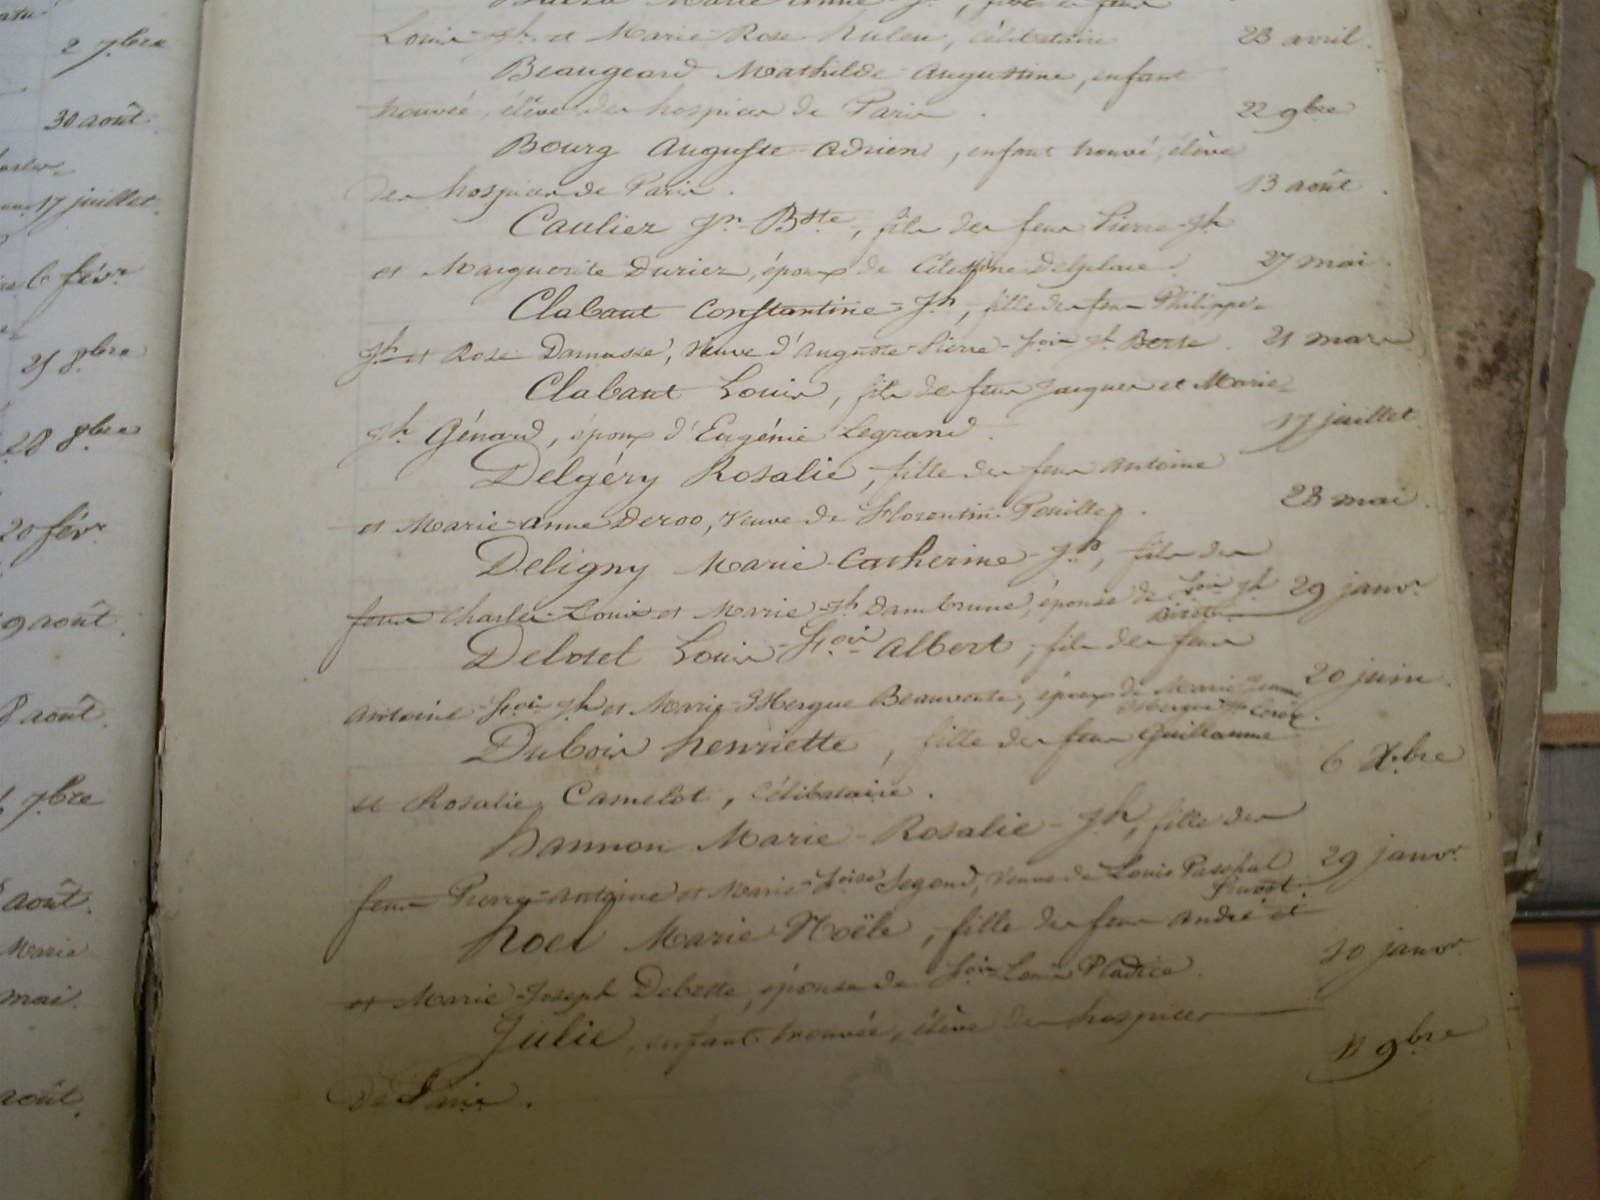 2 7bre
30 août.
17 juillet.
6 févr
21 8bre
28 8bre
20 févr
9 août.
août.
7bre
août.
Marie
mai.
août.
Marie Anne Jh, fille de feux
Louis Jh et Marie Rose Huleu, célibataire 23 avril.
Beaugeard Mathilde Augustine, enfant
trouvée, élève des hospices de Paris. 22 9bre
Bourg Auguste-Adrien, enfant trouvé, élève
des hospices de Paris. 13 août.
Caulier Jn Bste, fils des feux Pierre-Jh
et Marguerite Duriez, époux de Célestine Delplace. 27 mai.
Clabaut Constantine-Jh, fille des feux Philippe-
Jh et Rose Damasse, Veuve d'Auguste Pierre-Fois Jh Berte. 21 mars
Clabaut Louis, fils des feux Jacques et Marie-
Jh Génard, époux d'Eugénie Legrand. 17 juillet.
Delgéry Rosalie, fille des feux Antoine
et Marie-Anne Deroo, Veuve de Florentin 28 mai.
Deligny Marie Catherine-Jh, fille des
feux Charles-Louis et Marie-Jh Dambrune, épouse de Fois Jh 29 janvr.
Delotel Louis-Fois-Albert, fils des feux
Antoine-Fois-Jh et Marie époux de Marie Jeanne 20 juin.
Dubois henriette, fille des feux Guillaume
et Rosalie Camelot, célibataire. 6 Xbre
hannon Marie-Rosalie-Jh, fille des
feux Pierre-Antoine et Marie-Foise Segond, Veuve de Louis Paschal 29 janvr.
Pruvost.
hoel Marie Noële, fille des feux André et
et Marie-Joseph Debette, épouse de Fois Louis 10 janvr.
Julie, enfant trouvée, élève des hospices
de Paris. 11 9bre